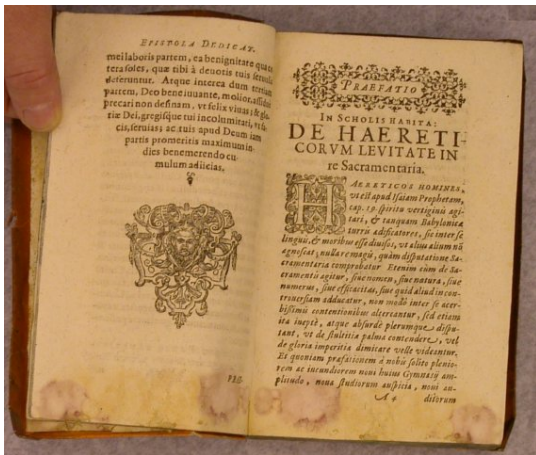 EPISTOLA DEDICAT.
mei laboris partem, ea benignitate qua
teraſoles, quæ tibi à deuotis tuis
deferuntur. Atque interea dum tertiam
partem, Deo bene iuuante, molior, aſſiduè
precari non deſinam, vt felix viuas; & glo
riæ Dei, gregiſque tui incolumitati, vt fa
cis, ſeruias; ac tuis apud Deum iam
partis promeritis maximum in
dies benemerendo cu-
mulum adiicias.
PRÆ-
PRAEFATIO
IN SCHOLIS HABITA:
DE HAERETI-
CORVM LEVITATE IN
re Sacramentaria.
HAERETICOS HOMINES,
vt eſt apud Iſaiam Prophetam,
cap. 19. ſpiritu vertiginis agi-
tari, & tanquam Babylonicæ
turris ædificatores, ſic inter ſe
linguis, & moribus eſſe diuiſos, vt alius alium nō
agnoſcat; nulla re magis, quàm diſputatione Sa-
cramentaria comprobatur. Etenim cùm de Sa-
cramentis agitur, ſiue nomen, ſiue natura, ſiue
numerus, ſiue efficacitas, ſiue quid aliud in con-
trouerſiam adducatur, non modò inter ſe acer-
biſſimis contentionibus altercantur, ſed etiam
ita ineptè, atque abſurdè plerumque diſpu-
tant, vt de ſtultitiæ palma contendere, vel
de gloria imperitiæ dimicare velle videantur.
Et quoniam præfationem à nobis ſolito plenio-
rem ac iucundiorem noui huius Gymnaſij am-
plitudo, noua ſtudiorum auſpicia, noui au-
A 4 ditorum